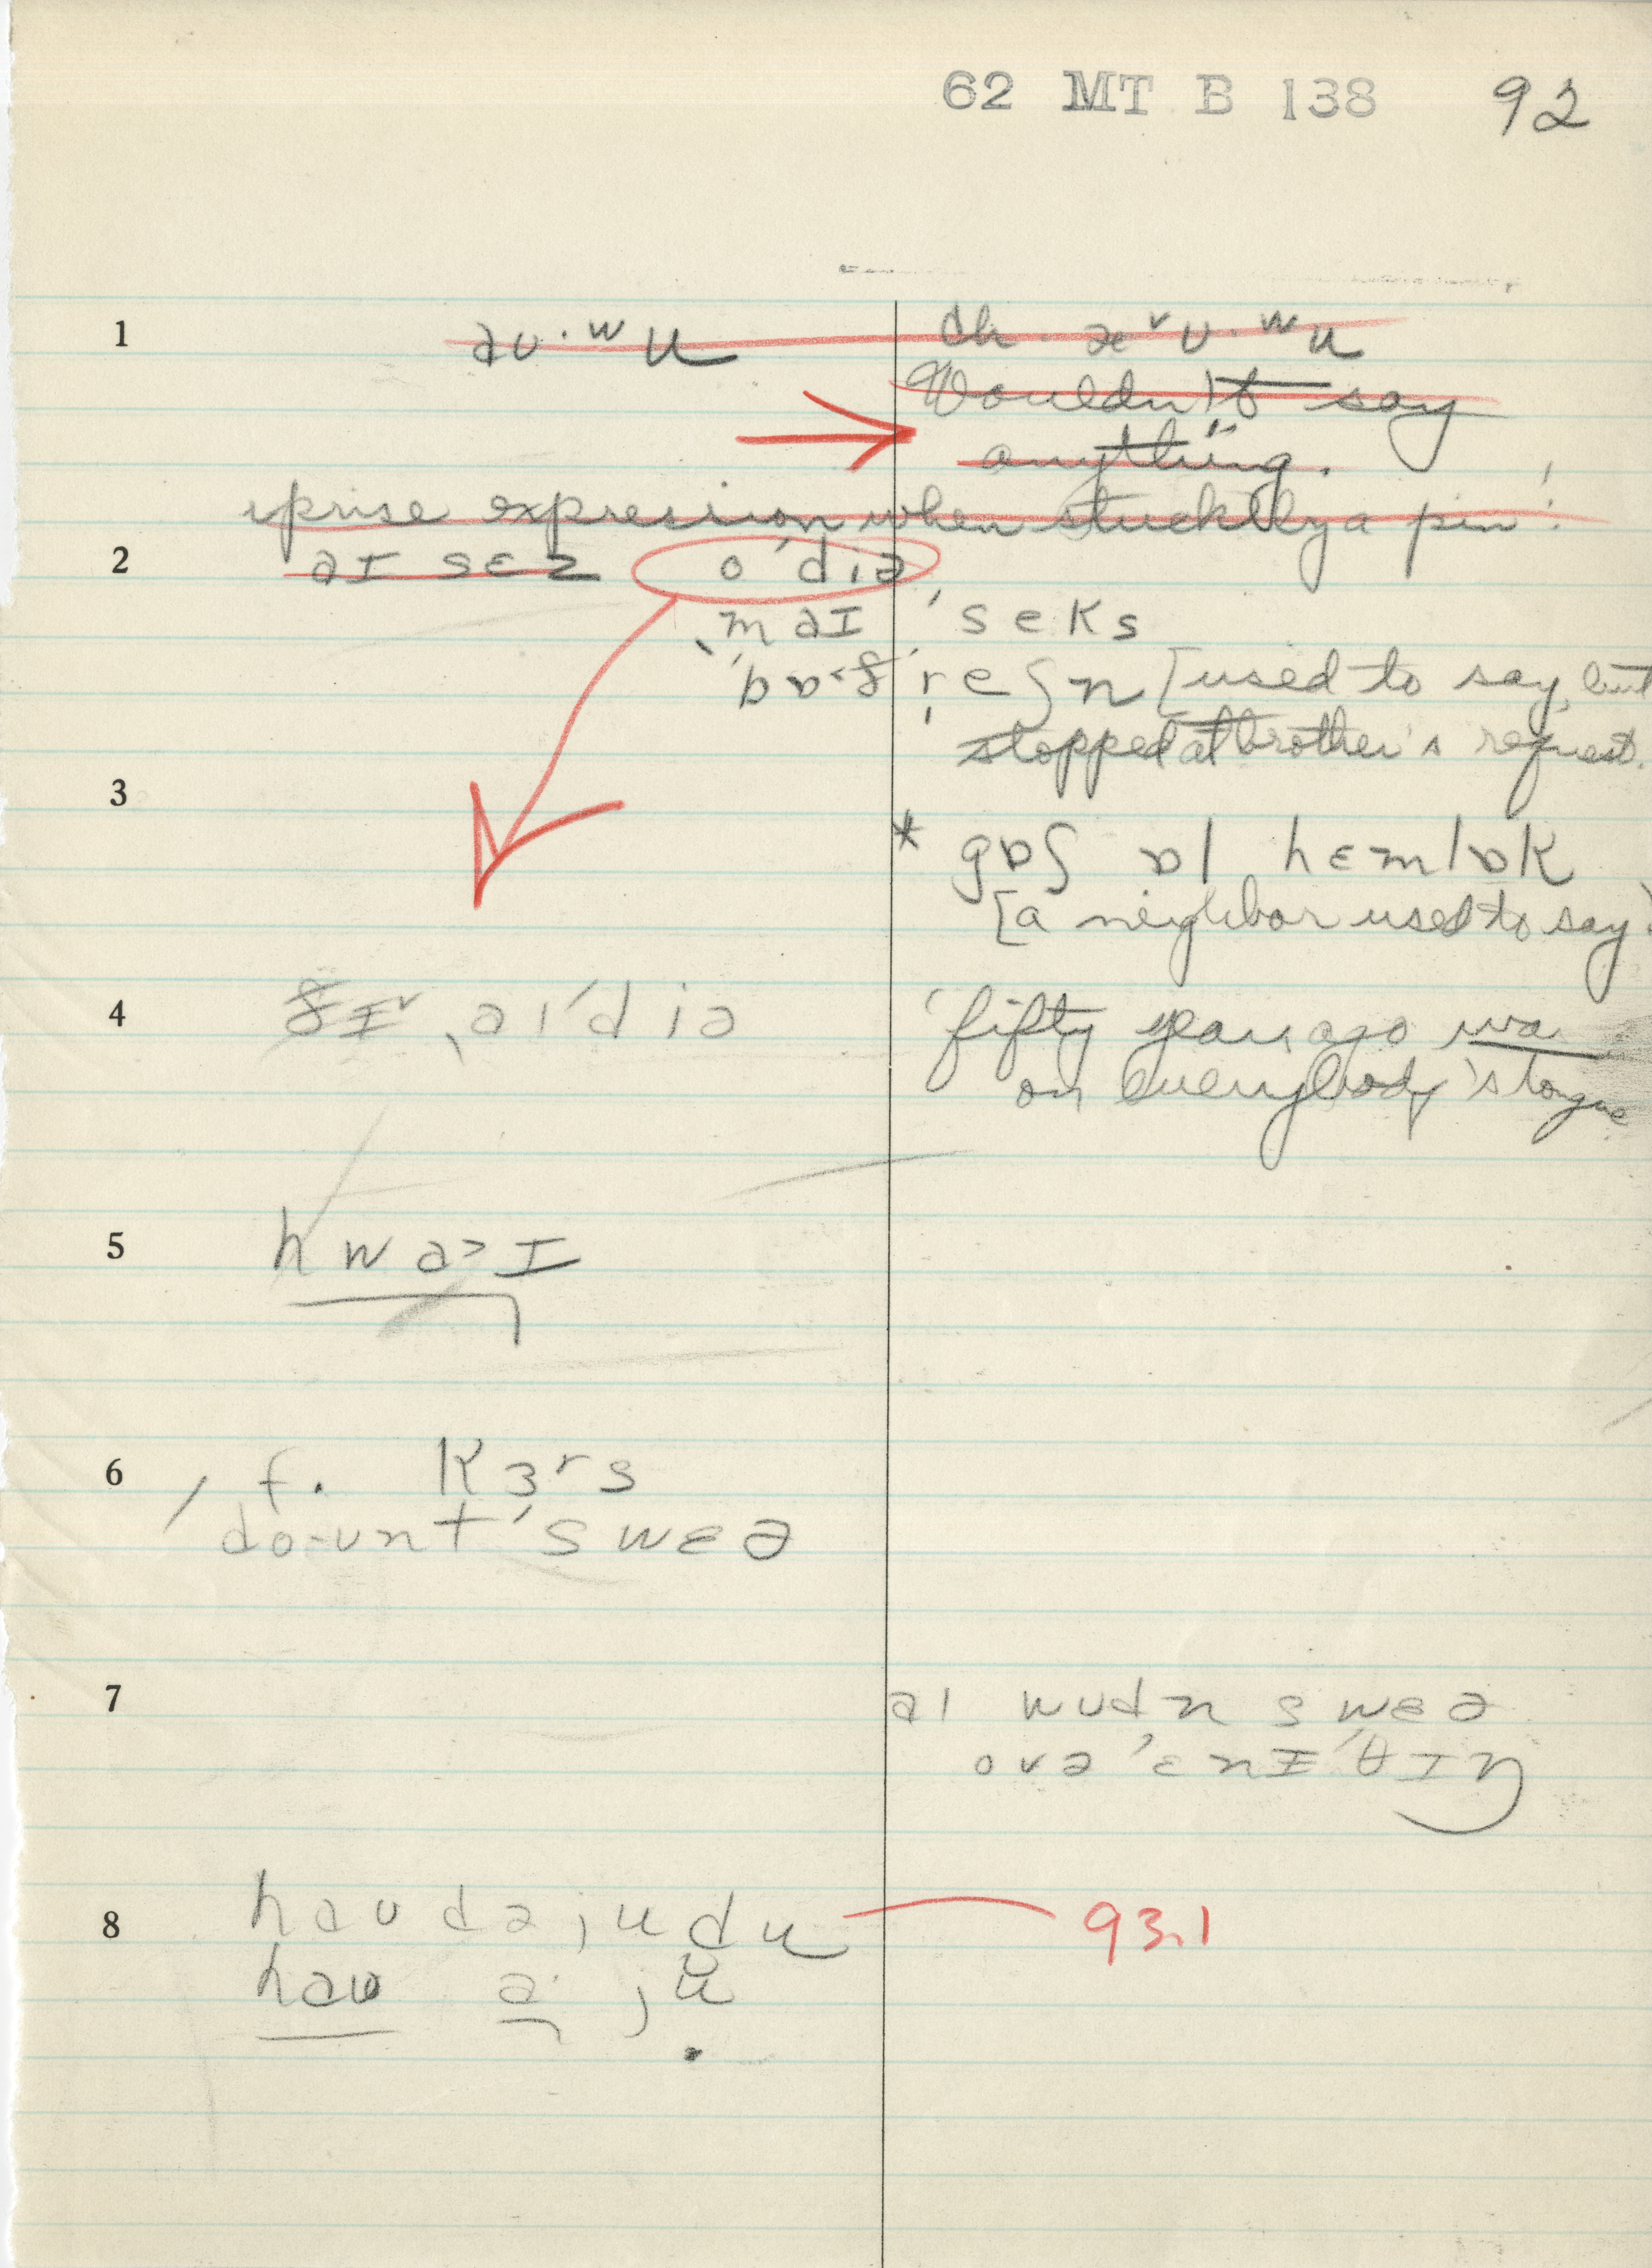 62 MT B 138 92
1 əu·ʷu ch. æᵛu·ʷu
Wouldn't say
anything.
prise expression when stuck by a pin!
2 aɪ sɛz o'diə
ˌmaɪ 'seks
're ʃn [used to say, but
stopped at brother's request.
3
* gɒʃ ɒl hɛmlɒk
[a neighbor used to say]
4 ˌaɪ'diə 'fifty years ago was
on everybody's tongue
5 hwa>ɪ
6 / f. kɜʳs
do·unt 'swɛə
7 aɪ wudn swɛə
ovə 'ɛnɪ'θɪŋ
8 haudəjudu 93.1
hau ə ju